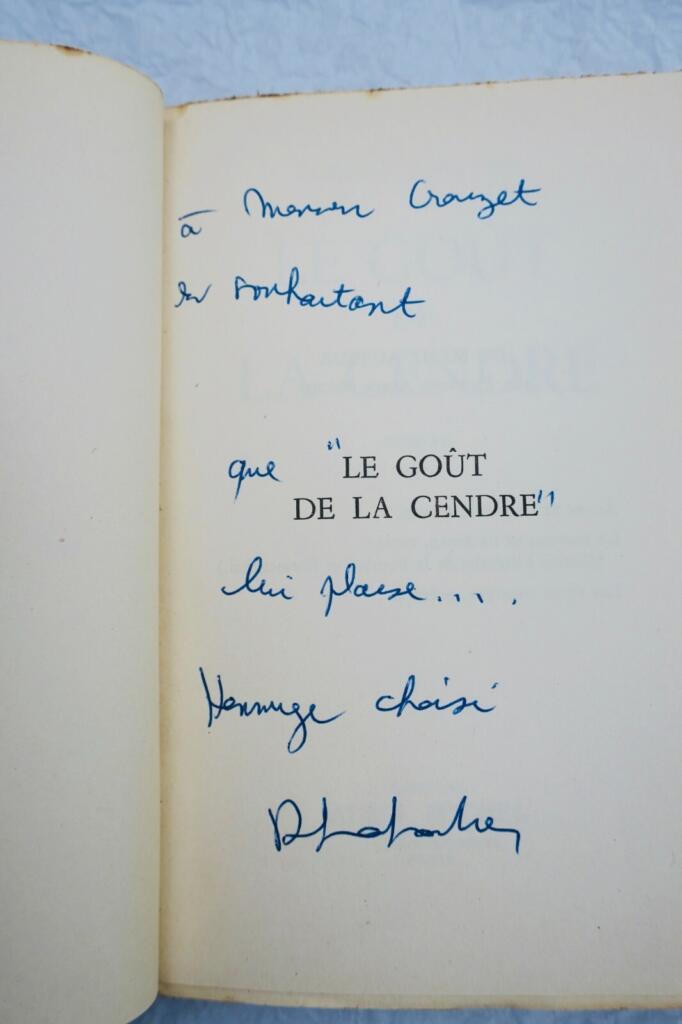 à Monsieur Crouzet
en souhaitant
que "LE GOÛT
DE LA CENDRE"
lui plaise....
Hommage choisi